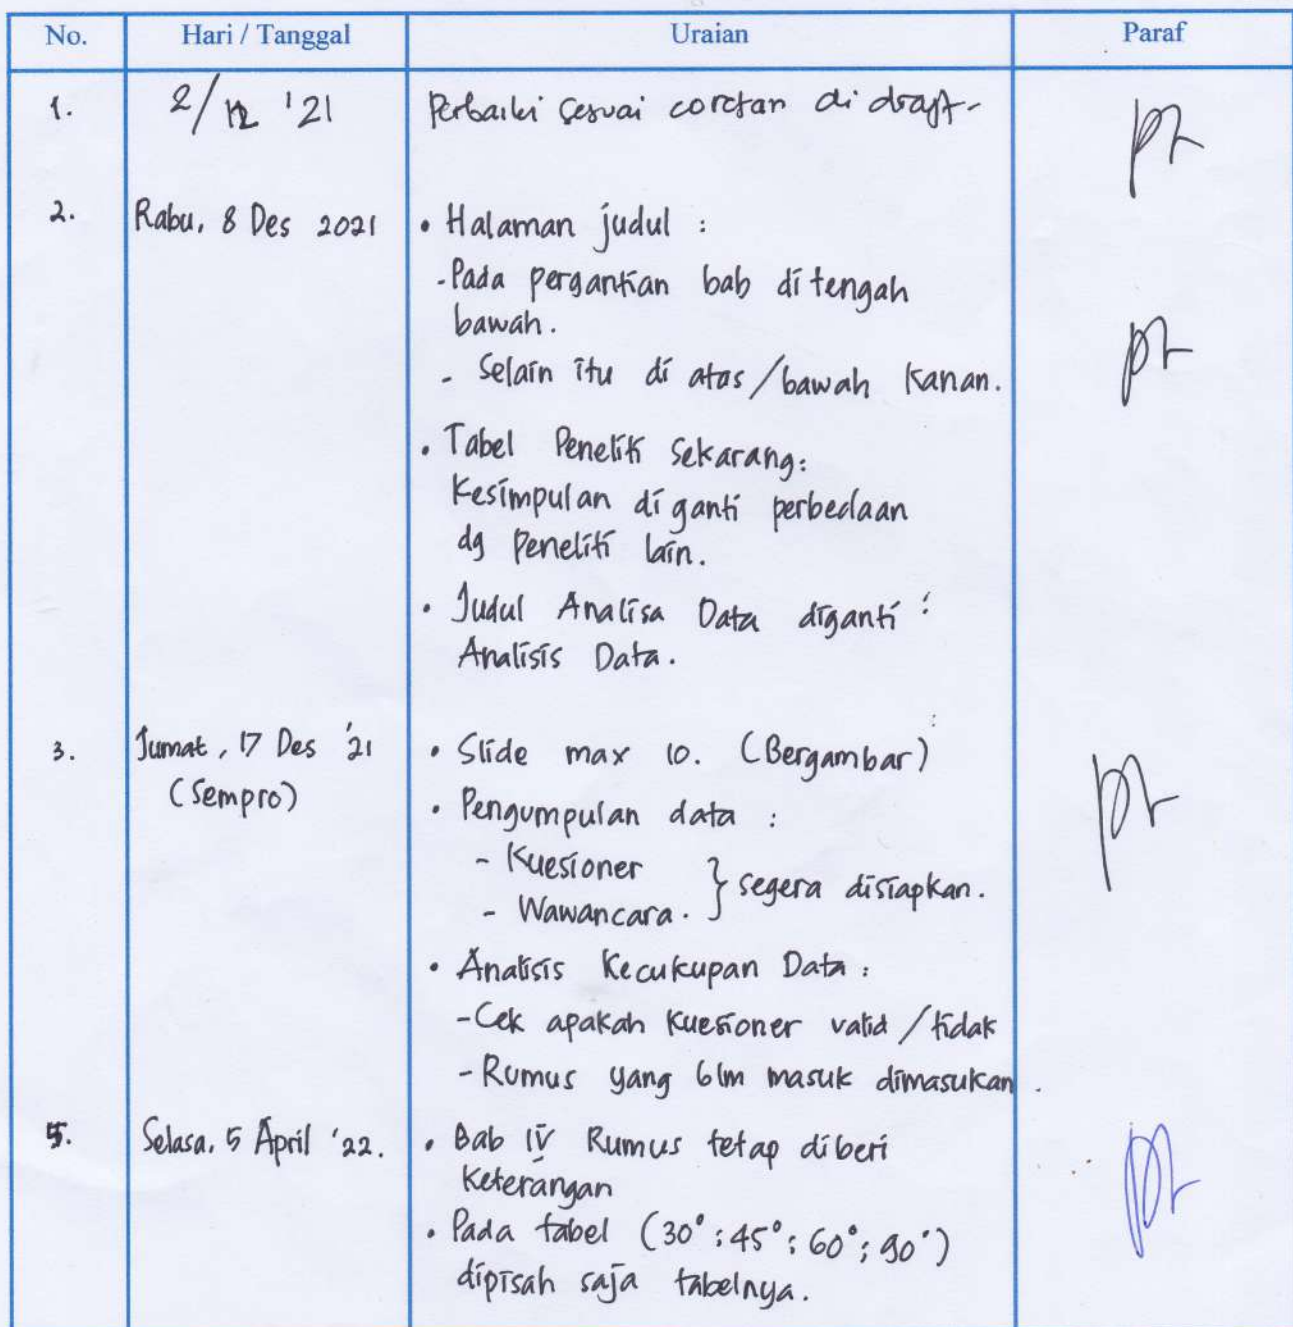 No. Hari / Tanggal Uraian Paraf
1. 2/12 '21 Perbaiki sesuai coretan di draft-
2. Rabu, 8 Des 2021 • Halaman judul :
- Pada pergantian bab di tengah
bawah.
- Selain itu di atas/bawah kanan.
• Tabel Peneliti Sekarang:
Kesimpulan di ganti perbedaan
dg Peneliti lain.
• Judul Analisa Data diganti :
Analisis Data.
3. Jumat, 17 Des '21 • Slide max 10. (Bergambar)
(Sempro) • Pengumpulan data :
- Kuesioner
- Wawancara. } segera disiapkan.
• Analisis Kecukupan Data :
- Cek apakah kuesioner valid / tidak
- Rumus yang blm masuk dimasukan.
5. Selasa, 5 April '22. • Bab IV Rumus tetap diberi
Keterangan
• Pada tabel (30°; 45°; 60°; 90°)
dipisah saja tabelnya.